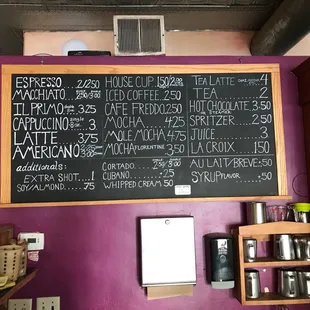 ESPRESSO 2/2.50
MACCHIATO
IL PRIMO 3.25
CAPPUCCINO 3
LATTE 3.75
AMERICANO
additionals:
EXTRA SHOT 1
SOY/ALMOND .75
HOUSE CUP
ICED COFFEE 2.50
CAFE FREDDO 2.50
MOCHA 4.25
MOLE MOCHA 4.75
MOCHA FLORENTINE
CORTADO
CUBANO .25
WHIPPED CREAM .50
TEA LATTE 4
TEA 2
HOT CHOCOLATE 3.50
SPRITZER 2.50
JUICE 3
LA CROIX 1.50
AU LAIT/BREVE .50
SYRUP FLAVOR .50